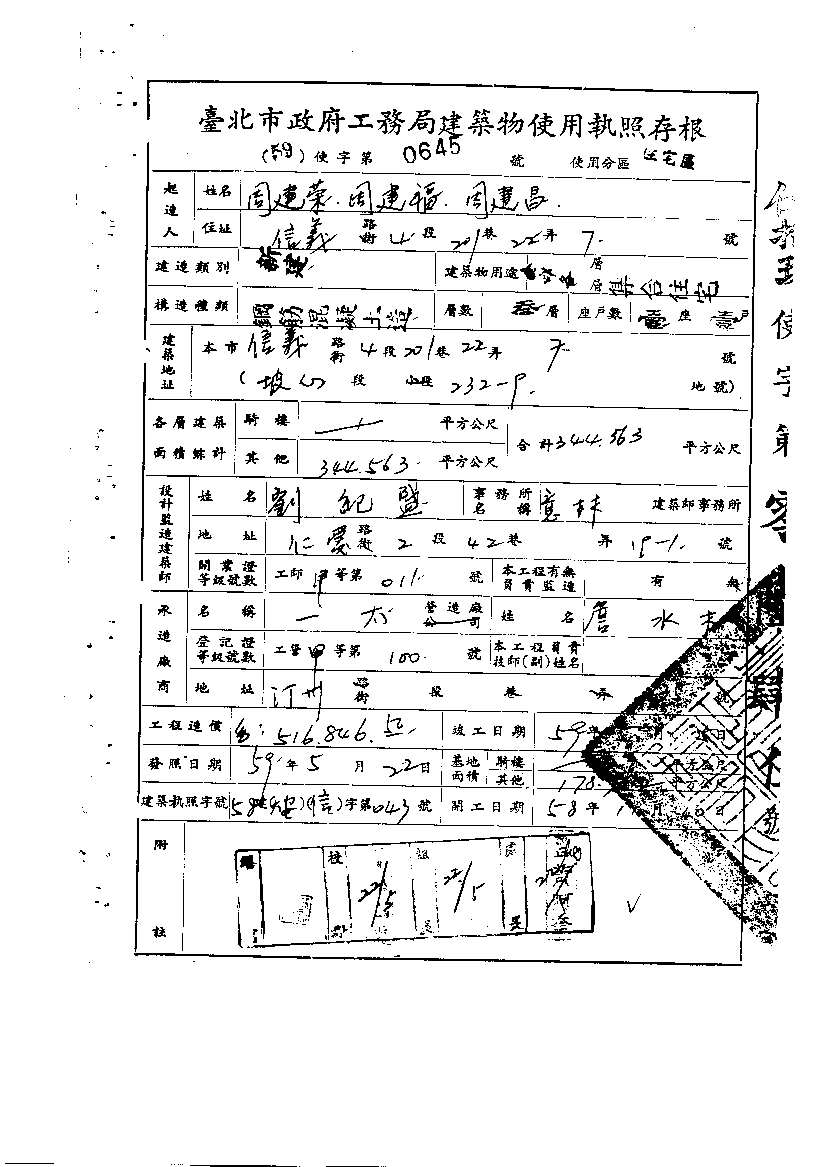 臺北市政府工務局建築物使用執照存根
(59) 使字第 0645 號 使用分區 住宅區
起造人 姓名 周建荣.周建福.周建昌.
住址 信義 路街 4 段 201 巷 22 弄 7. 號
建造類別 新建 建築物用途 層層 集合住宅
構造種類 鋼筋混凝土造 層數 層 座戶數 壹座 壹戶
建築地址 本市 信義 路街 4 段 201 巷 22 弄 7. 號
( 坡心 段 小段 232-9. 地號)
各層建築面積総計 騎樓 平方公尺 合計 344.563 平方公尺
其他 344.563. 平方公尺
設計監造建築師 姓名 劉紀盟 事務所名稱 建築師事務所
地址 仁愛 路街 2 段 42 巷 弄 19-1. 號
開業證等級號數 工師 甲 等第 011. 號 本工程有無負責監造 有 無
承造廠商 名稱 一大 營造廠公司 姓名 詹水
登記證等級號數 工營 甲 等第 100. 號 本工程負責技師(副)姓名
地址 汀州 路街 段 巷 弄 號
工程造價 516.846. 竣工日期 59 年 日
發照日期 59 年 5 月 22 日 基地面積 騎樓 平方公尺
其他 170. 平方公尺
建築執照字號 58(建)(信)字第 043 號 開工日期 58 年 月 日
附註
校 組 處
22/5 22/5
使字第零
肆
號